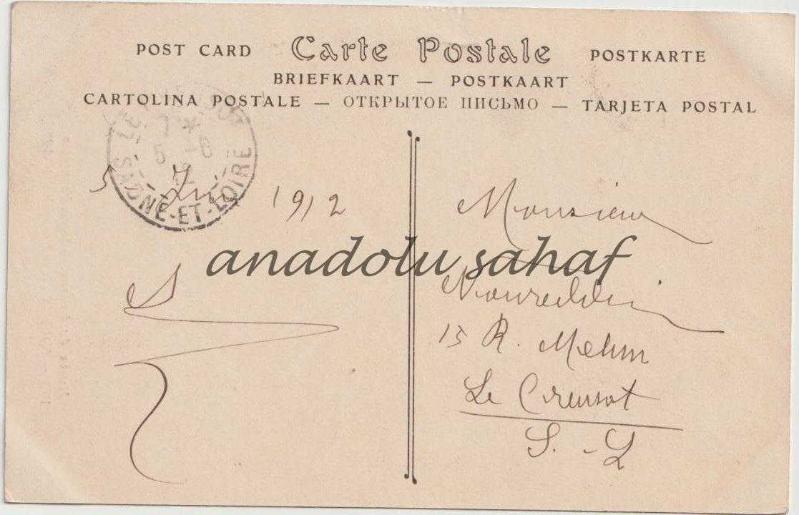 POST CARD Carte Postale POSTKARTE
BRIEFKAART — POSTKAART
CARTOLINA POSTALE — ОТКРЫТОЕ ПИСЬМО — TARJETA POSTAL
SAONE-ET-LOIRE
5 1912
anadolu sahaf
Monsieur
Noureddin
15 R.
Le Creusot
S.-L